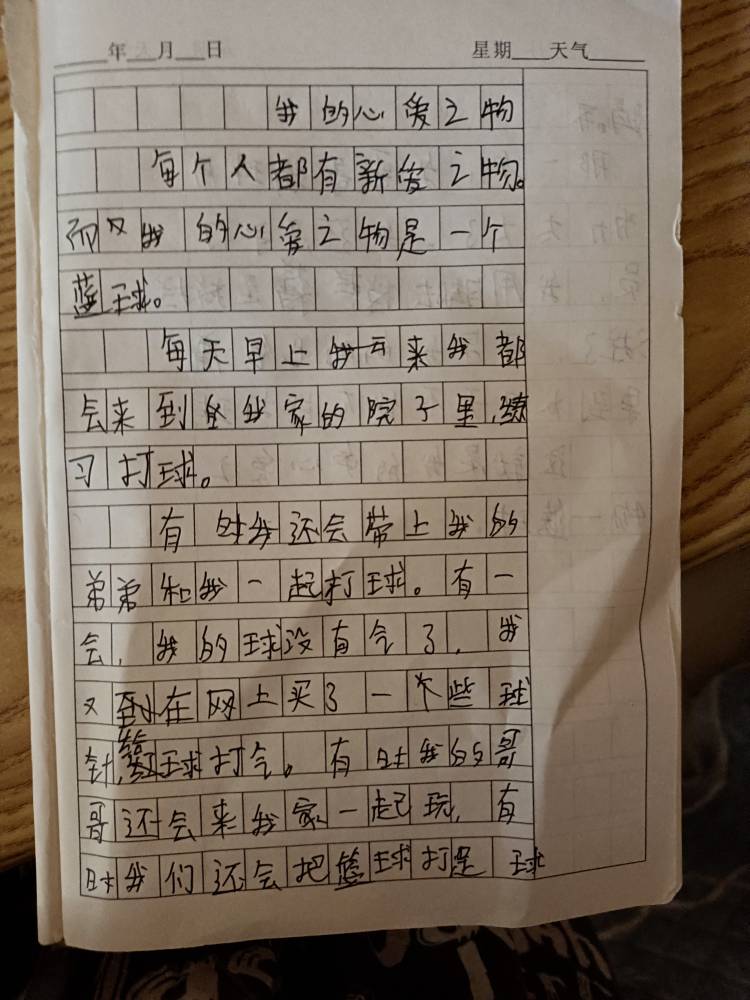 年 月 日 星期 天气
我的心爱之物
每个人都有新爱之物。
而又我的心爱之物是一个
蓝球。
每天早上我一来我都
会来到我家的院子里,练
习打球。
有时我还会带上我的
弟弟和我一起打球。有一
会,我的球没有气了,我
又到在网上买了一个些球
针,球打气。有时我的哥
哥还会来我家一起玩,有
时我们还会把球打是球